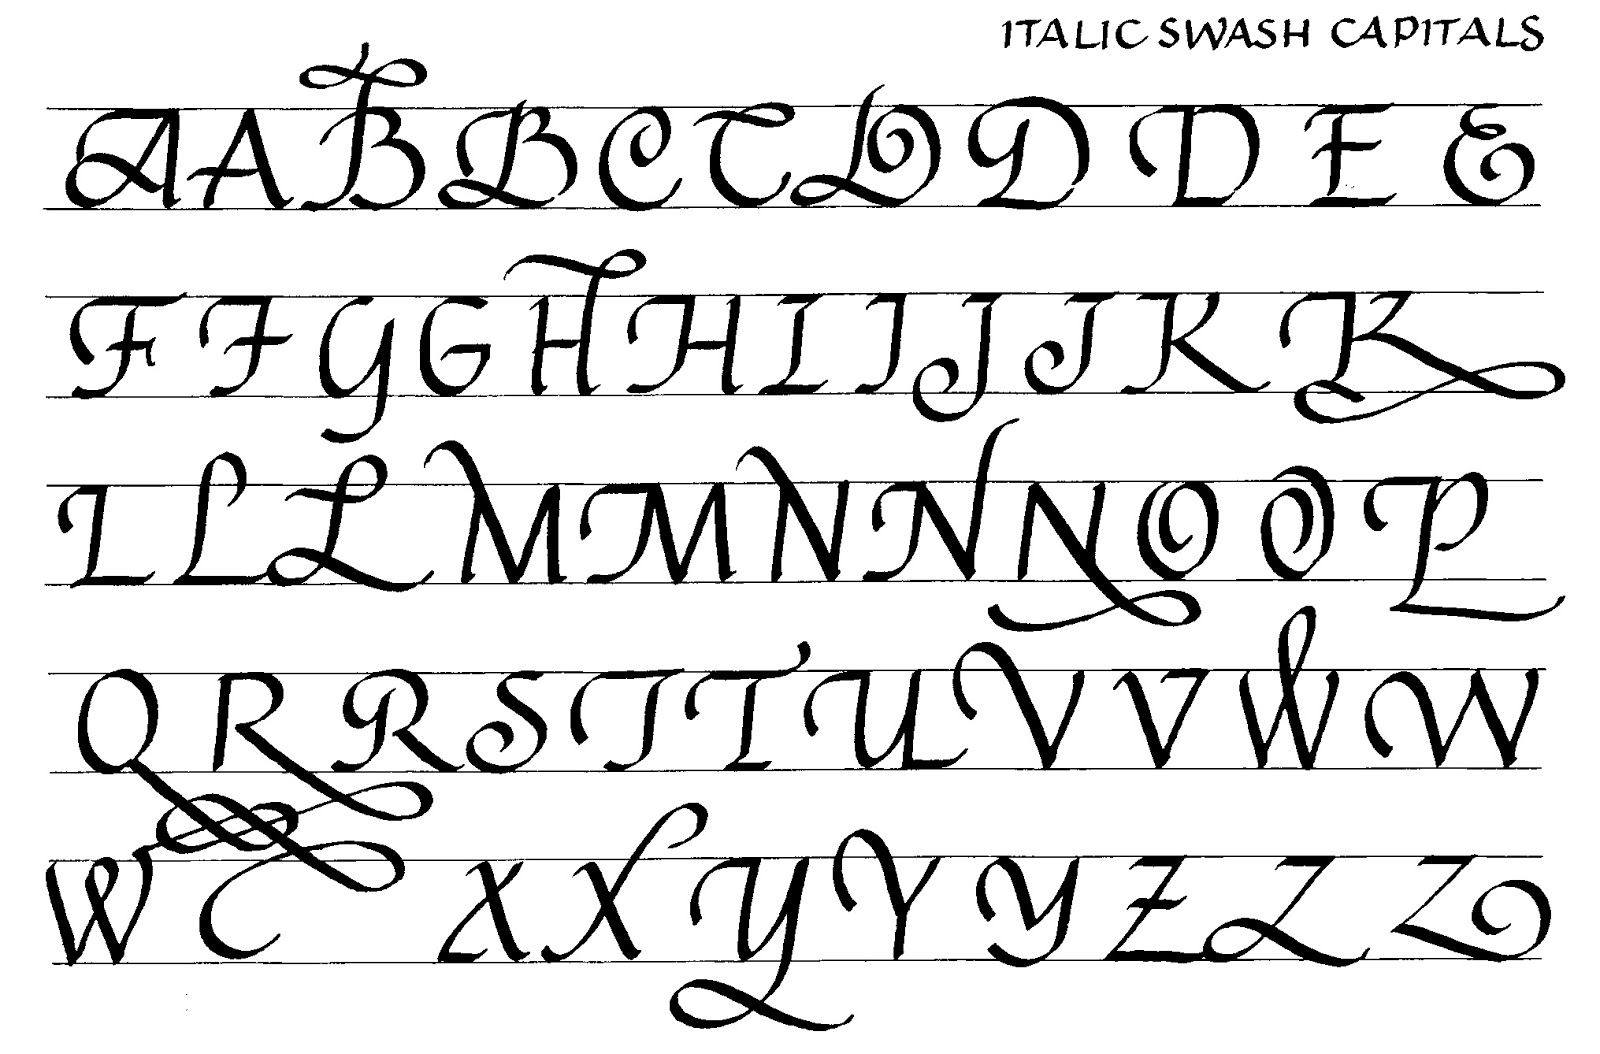 ITALIC SWASH CAPITALS
A A B B C C D D D E E
F F G G H H I I J J K K
L L L M M N N N O O P
Q R R S T T U V V W W
W X X Y Y Y Z Z Z